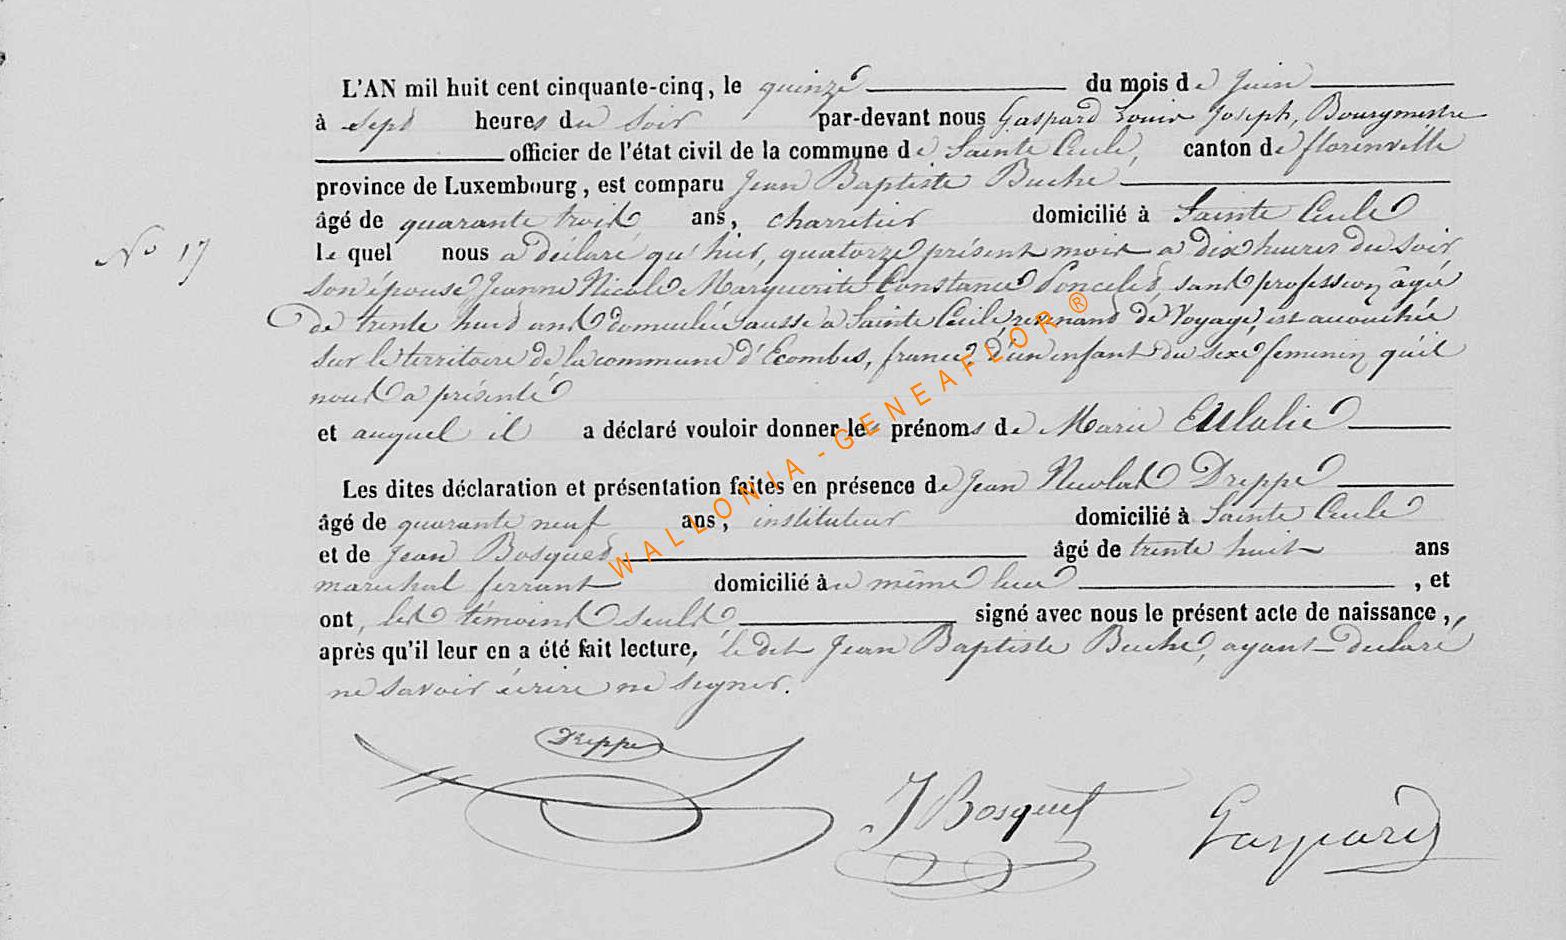 L'AN mil huit cent cinquante-cinq, le quinze du mois de Juin
à sept heures du soir par-devant nous Gaspard Louis Joseph, Bourgmestre
officier de l'état civil de la commune de Sainte Cécile, canton de florenville
province de Luxembourg, est comparu Jean Baptiste Buche
âgé de quarante trois ans, charretier domicilié à Sainte Cécile
N° 17
le quel nous a déclaré qu'hier, quatorze présent mois à dix heures du soir,
son épouse Jeanne Nicole Marguerite Constance Poncelet, sans profession âgée
de trente huit ans domiciliée aussi à Sainte Cécile, revenand de Voyage, est accouchée
sur le territoire de la commune d'Ecombes, france, d'un enfant du sexe feminin qu'il
nous a présenté
et auquel il a déclaré vouloir donner les prénoms de Marie Eulalie
Les dites déclaration et présentation faites en présence de Jean Nicolas Dreppe
âgé de quarante neuf ans, instituteur domicilié à Sainte Cécile
et de Jean Bosquet âgé de trente huit ans
marechal ferrant domicilié à même lieu, et
ont, les témoins seuls signé avec nous le présent acte de naissance,
après qu'il leur en a été fait lecture, le dit Jean Baptiste Buche, ayant declaré
ne savoir écrire ne signer.
Dreppe
J Bosquet
Gaspard
WALLONIA - GENEAFLOR ®